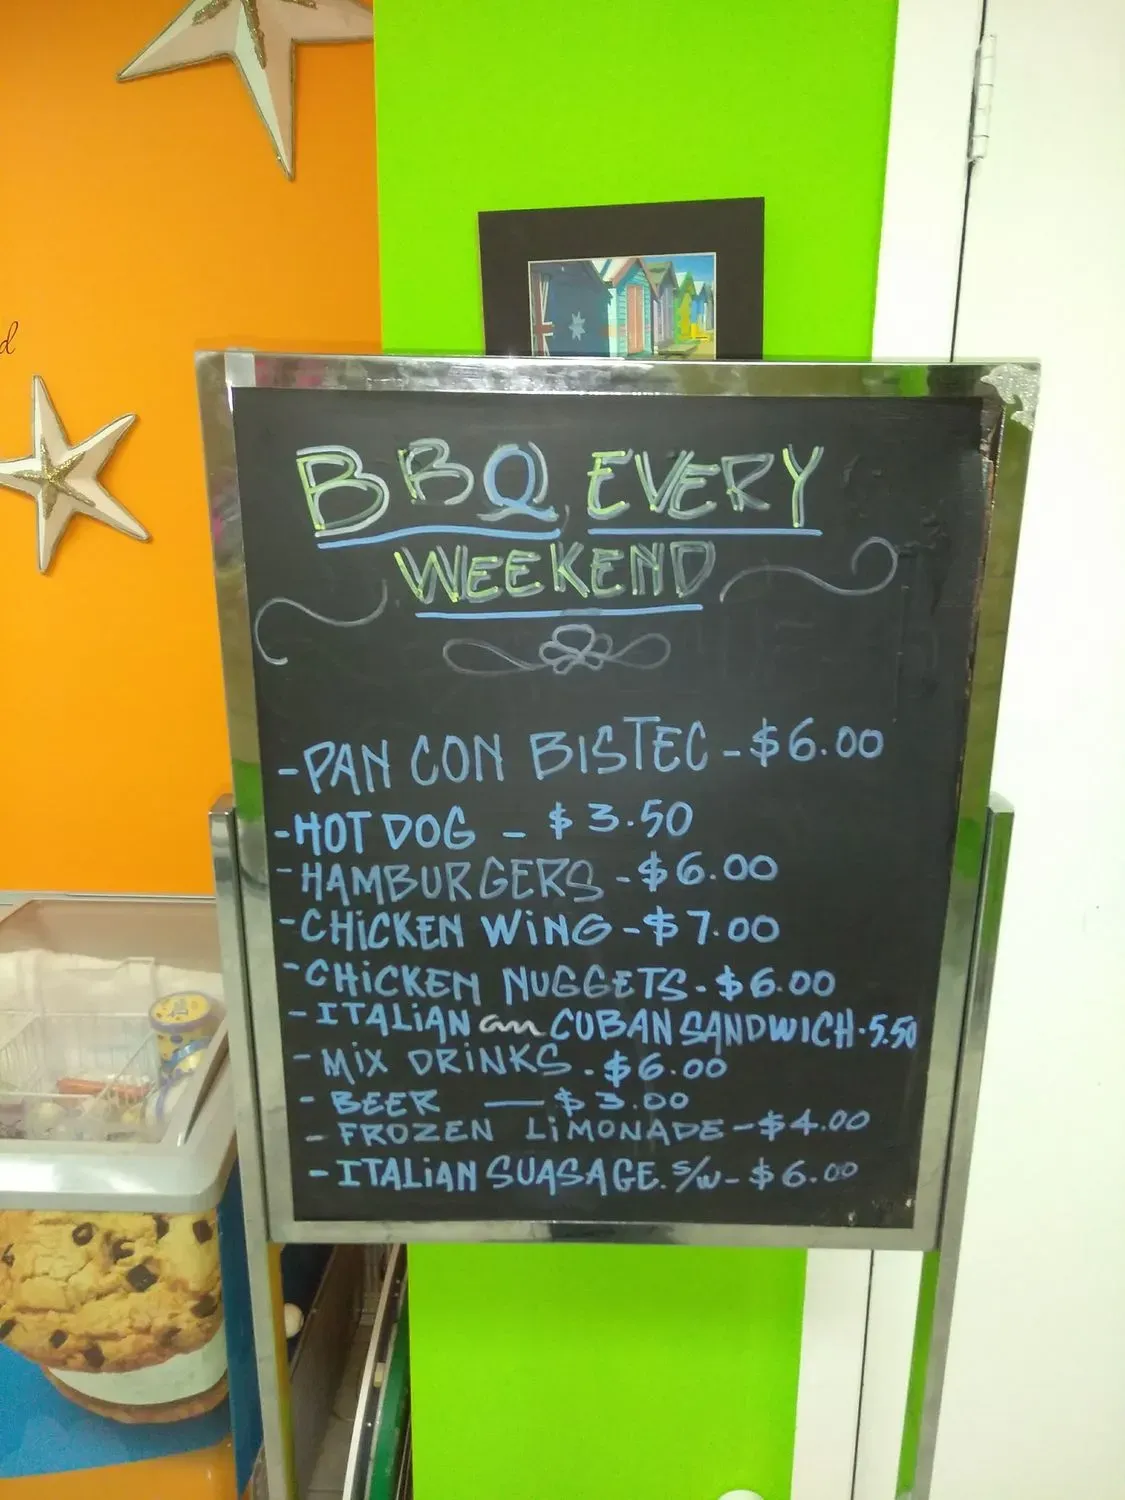 d
BBQ EVERY
WEEKEND
-PAN CON BISTEC-$6.00
-HOT DOG - $3.50
-HAMBURGERS-$6.00
-CHiCKEN WiNG-$7.00
-CHiCKEN NUGGETS-$6.00
-ITALiAN an CUBAN SANDWICH-5.50
-MiX DRiNKS-$6.00
-BEER — $3.00
-FROZEN LiMONADE-$4.00
-ITALiAN SUASAGE. S/W-$6.00